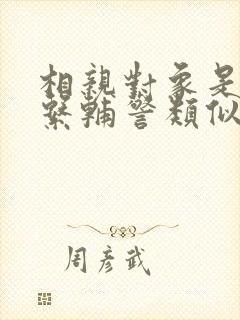 相親對象是
緊輔警類似
周彥武